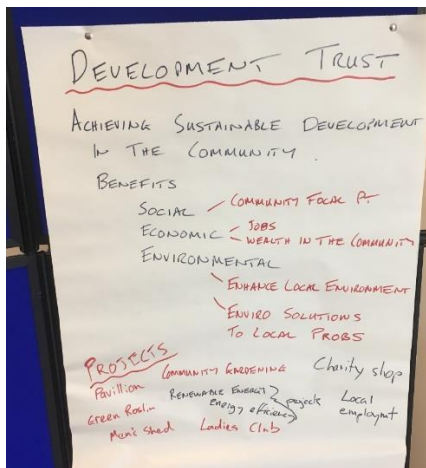 DEVELOPMENT TRUST
ACHIEVING SUSTAINABLE DEVELOPMENT
IN THE COMMUNITY.
BENEFITS
SOCIAL COMMUNITY FOCAL PT.
ECONOMIC JOBS
WEALTH IN THE COMMUNITY
ENVIRONMENTAL
ENHANCE LOCAL ENVIRONMENT
ENVIRO SOLUTIONS
TO LOCAL PROBS
PROJECTS
COMMUNITY GARDENING Charity shop
Pavillion RENEWABLE ENERGY projects Local
Green Roslin energy efficiency employmt
Men's Shed Ladies Club